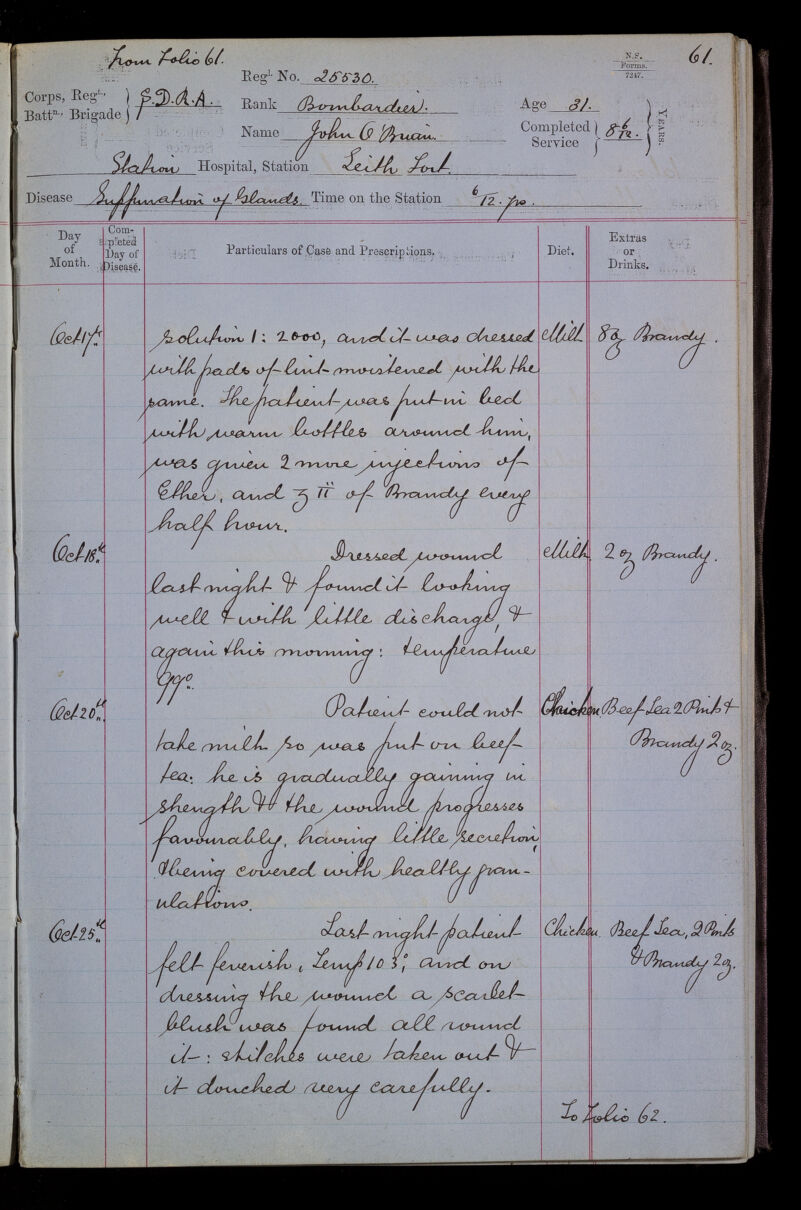 From Folio 61.
61.
N.S.
Forms.
7247.
Regl. No. 25530.
Corps, Regt.,
Battn., Brigade } S.D.R.A.
Rank Bombardier.
Age 31.
Name John O'Bruan.
Completed
Service } 8 6/12. YEARS.
Station Hospital, Station Leith Fort.
Disease Suppuration of Glands. Time on the Station 6/12.
Day of Month.
Completed Day of Disease.
Particulars of Case and Prescriptions.
Diet.
Extras or Drinks.
Oct 17th. solution 1: 2000, and it was dressed Milk 8 oz Brandy.
with pads of lint moistened with the
same. The patient was put in bed
with warm bottles around him,
was given 2 more injections of
Ether, and ʒ ii of Brandy every
half hour.
Oct 18th. Dressed wound Milk 2 oz Brandy.
last night & found it looking
well & with little discharge, &
again this morning: temperature
99°.
Oct 20th. Patient could not Chicken Beef Tea 2 Pints &
take milk so was put on beef- Brandy 2 oz.
tea: he is gradually gaining in
strength & the wound progresses
favourably, having little secretion,
& being covered with healthy gran-
ulations.
Oct 25th. Last night patient Chicken Beef Tea, 2 Pints
felt feverish, Temp 103°, and on & Brandy 2 oz.
dressing the wound a scarlet
blush was found all round
it: stitches were taken out &
it douched very carefully.
To Folio 62.